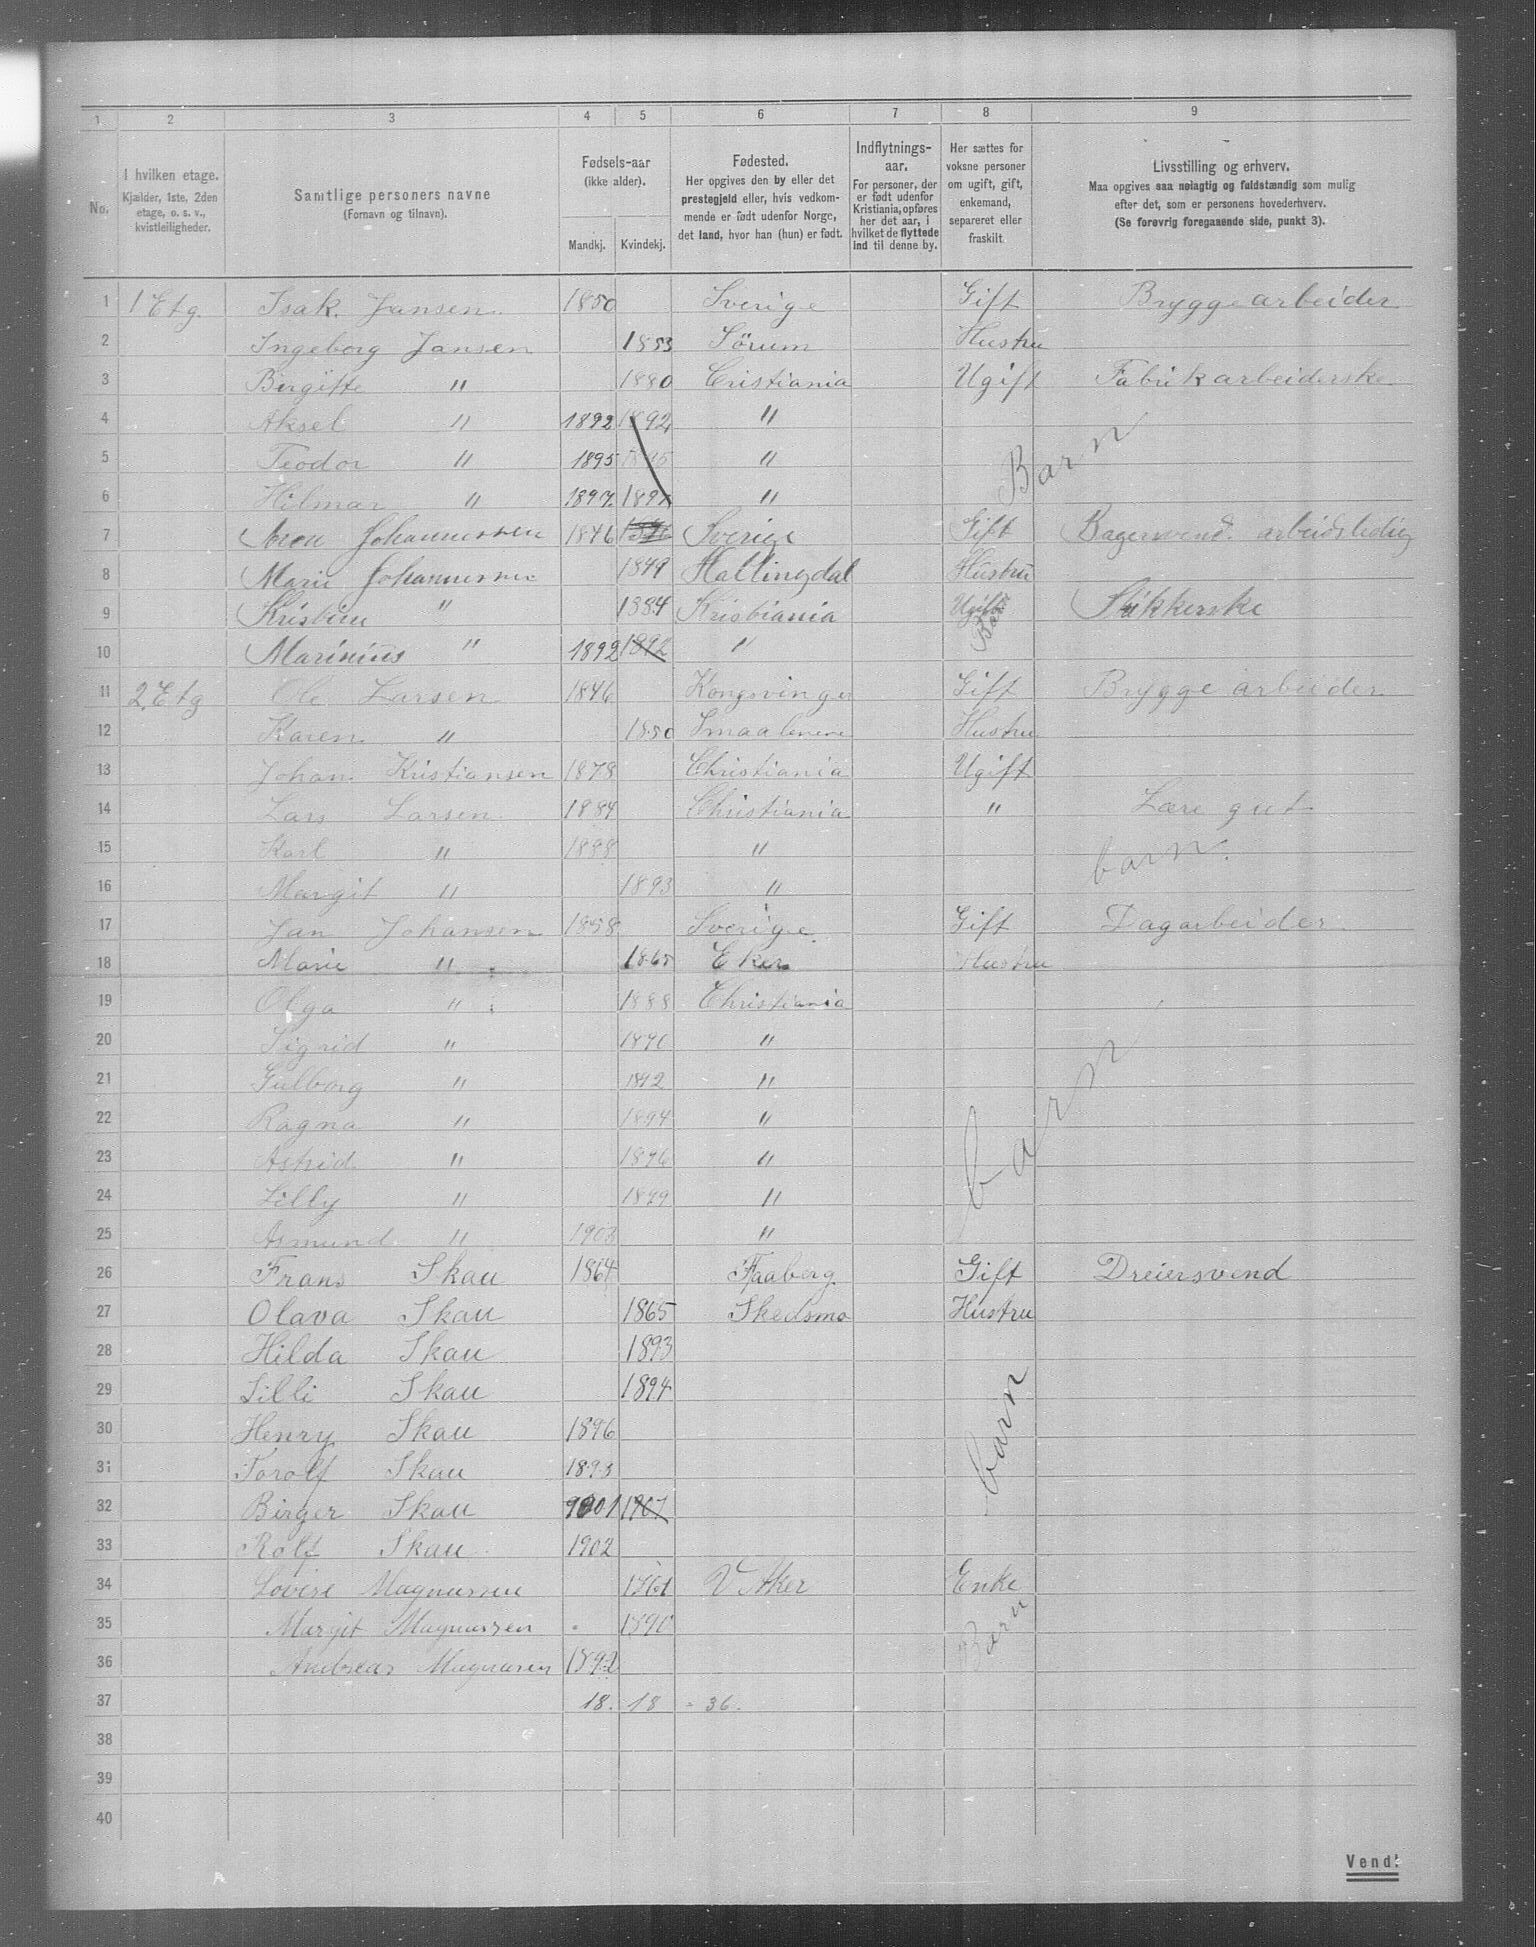 1 2 3 4 5 6 7 8 9
No.
I hvilken etage.
Kjælder, 1ste, 2den
etage, o. s. v.,
kvistleiligheder.
Samtlige personers navne
(Fornavn og tilnavn).
Fødsels-aar
(ikke alder).
Mandkj. Kvindekj.
Fødested.
Her opgives den by eller det
prestegjeld eller, hvis vedkom-
mende er født udenfor Norge,
det land, hvor han (hun) er født.
Indflytnings-
aar.
For personer, der
er født udenfor
Kristiania, opføres
her det aar, i
hvilket de flyttede
ind til denne by.
Her sættes for
voksne personer
om ugift, gift,
enkemand,
separeret eller
fraskilt.
Livsstilling og erhverv.
Maa opgives saa nøiagtig og fuldstændig som mulig
efter det, som er personens hovederhverv.
(Se forøvrig foregaaende side, punkt 3).
1 1 Etg. Isak. Jansen 1850 Sverige Gift Bryggearbeider
2 Ingeborg Jansen 1853 Sörum Hustru
3 Birgitte " 1880 Cristiania Ugift Fabrikarbeiderske
4 Aksel " 1892 1892 "
5 Teodor " 1895 "
6 Hilmar " 1897. 1897 "
Barn
7 Johannessen 1846 Sverige Gift Bagersvend. arbeidsledig
8 Marie Johannessen 1849 Hallingdal Hustru
9 Kristine " 1884 Kristiania Ugift
10 Marinius " 1892 1892 " Barn
11 2. Etg Ole Larsen 1846 Kongsvinger Gift Brygge arbeider
12 Karen " 1850 Smaalenene Hustru
13 Johan Kristiansen 1878 Christiania Ugift
14 Lars Larsen 1884 Christiania " Lære gut
15 Karl " 1888 " barn.
16 Margit " 1893 "
17 Jan Johansen 1858 Sverige Gift Dagarbeider
18 Marie " 1865 Eker Hustru
19 Olga " 1888 Christiania
20 Sigrid " 1890 "
21 Gulborg " 1892 "
22 Ragna " 1894 "
23 Astrid " 1896 "
24 Lilly " 1899 "
25 Asmund " 1903 "
barn
26 Frans Skau 1864 Faaberg Gift Dreiersvend
27 Olava Skau 1865 Skedsmo Hustru
28 Hilda Skau 1893
29 Lilli Skau 1894
30 Henry Skau 1896
31 Torolf Skau
32 Birger Skau 1901
33 Rolf Skau 1902
barn
34 Lovise Magnussen 1861 V Aker Enke
35 Margit Magnussen 1890
36 Andreas Magnussen 1892
Barn
37 18. 18 = 36.
38
39
40
Vend!